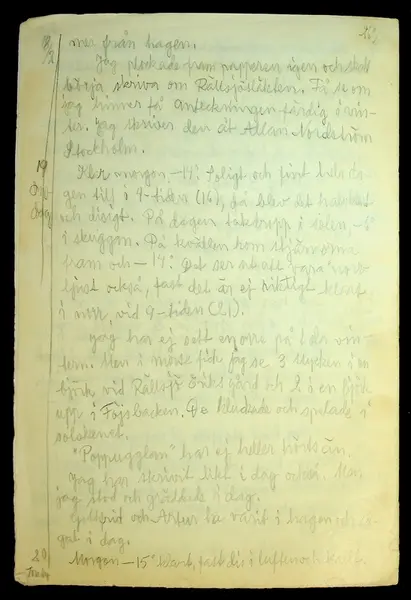 18/2
mer från hagen.
Jag plockade fram papperen igen och skall
börja skriva om Rällsjösläkten. Få se om
jag hinner få anteckningen färdig i vin-
ter. Jag skriver den åt Allan Nordström
Stockholm.
19
Ons
dag
Klar morgon, -14°. Soligt och fint hela da-
gen till i 4-tiden (16), då blev det halvklart
och disigt. På dagen takdropp i solen, -6°
i skuggan. På kvällen kom stjärnorna
fram och -14°. Det ser ut att vara norr-
ljust också, fast det är ej riktigt klart
i norr, vid 9-tiden (21).
Jag har ej sett en orre på hela vin-
tern. Men i morse fick jag se 3 stycken i en
björk vid Rällsjö Eriks gård och 2 i en björk
upp i Fäjsbacken. De kluckade och spelade i
solskenet.
"Pärugglan" har ej heller hörts än.
Jag har skrivit litet i dag också. Men
jag stod och gräddade i dag.
Gottfrid och Artur ha varit i hagen och så-
gat i dag.
20
Morgon -15° klart, fast dis i luften och kallt.